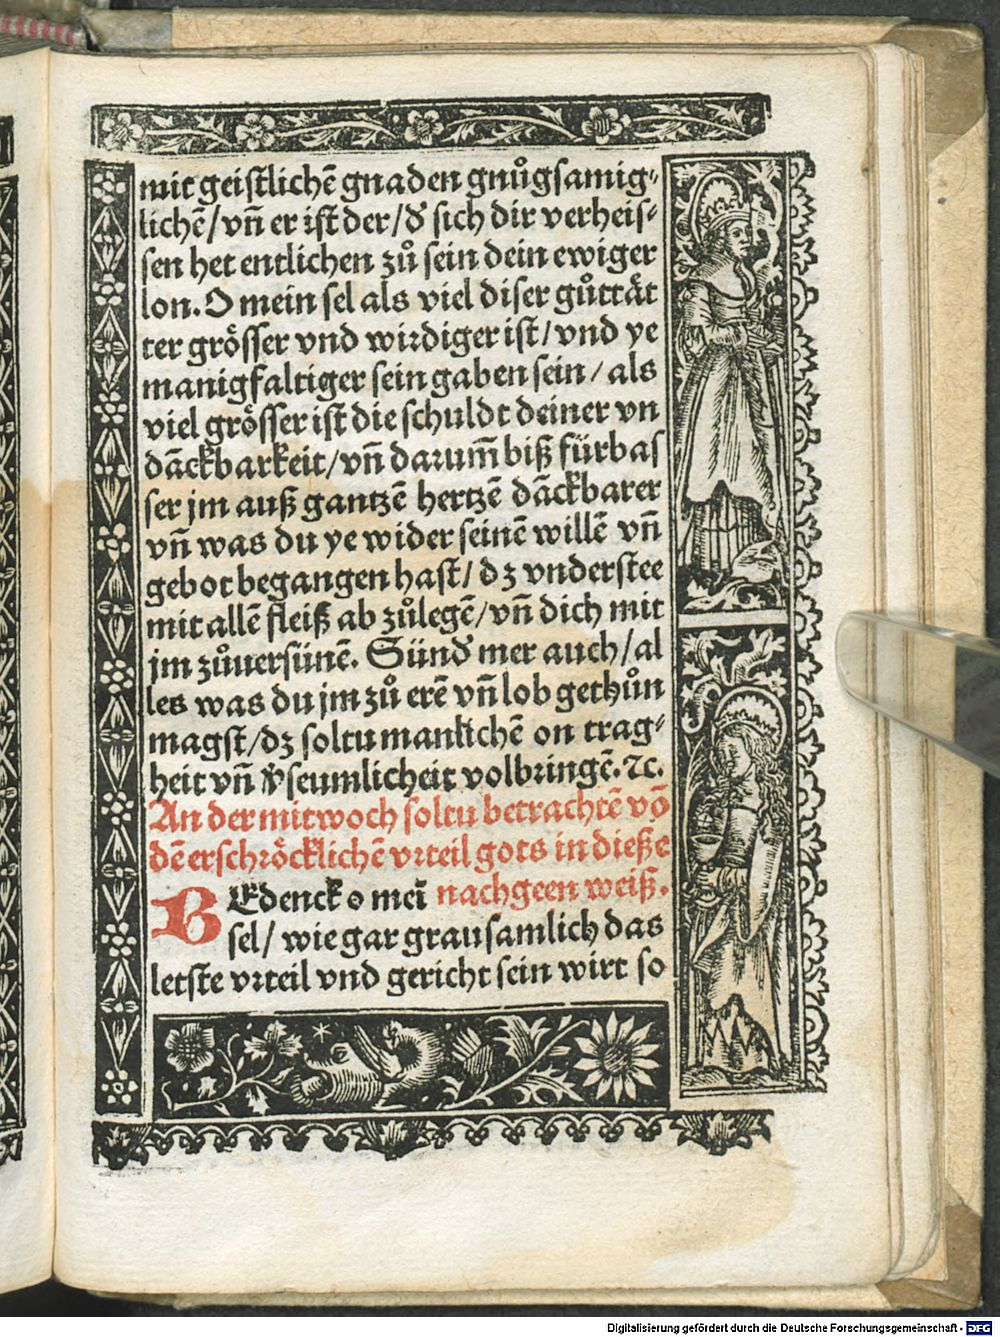 mit geistlichē gnaden gnůgsamig⸗
lichē/vñ er ist der/đ sich dir verheis⸗
sen het entlichen zů sein dein ewiger
lon. O mein sel als viel diser gůttät
ter grösser vnd wirdiger ist/vnd ye
manigfaltiger sein gaben sein/als
viel grösser ist die schuldt deiner vn
dāckbarkeit/vñ darum̄ biß fürbas
ser jm auß gantzē hertzē dāckbarer
vñ was du ye wider seinē willē vñ
gebot begangen hast/dz vnderstee
mit allē fleiß ab zůlegē/vñ dich mit
jm zůuersünē. Sünđ mer auch/al
les was du jm zů erē vñ lob gethůn
magst/dz soltu manlichē on trag⸗
heit vñ v̄seumlicheit volbringē. ⁊c.
An der mitwoch soltu betrachtē vō
dē erschröcklichē vrteil gots in dieße
nachgeen weiß.
BEdenck o mei̅
sel/wie gar grausamlich das
letste vrteil vnd gericht sein wirt so
Digitalisierung gefördert durch die Deutsche Forschungsgemeinschaft - DFG